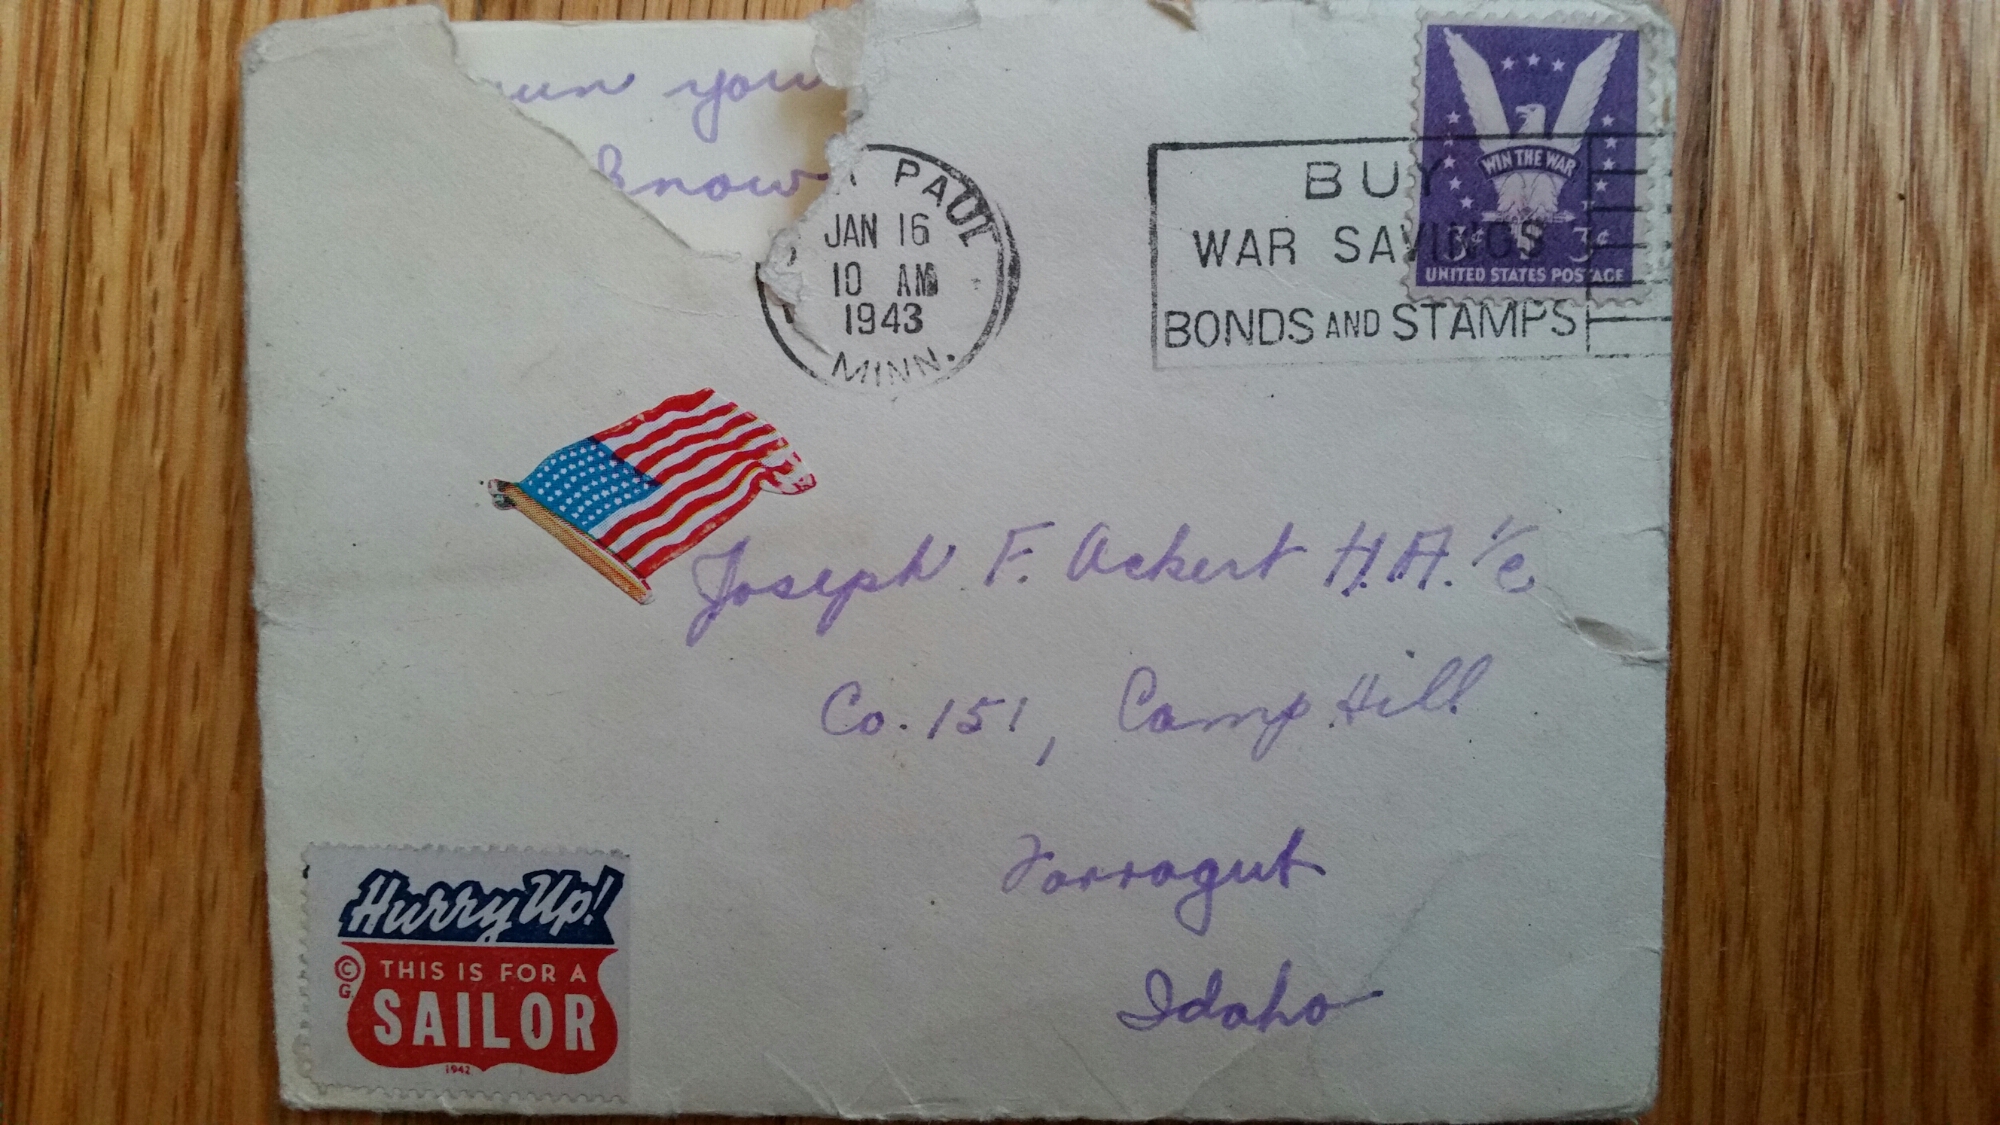 you
PAUL
JAN 16
10 AM
1943
MINN.
BUY
WAR SAVINGS
BONDS AND STAMPS
WIN THE WAR
3¢ 3¢
UNITED STATES POSTAGE
Joseph F. Ackert H.A. 1/c
Co. 151, Camp Hill
Farragut
Idaho
Hurry Up!
© G.
THIS IS FOR A
SAILOR
1942